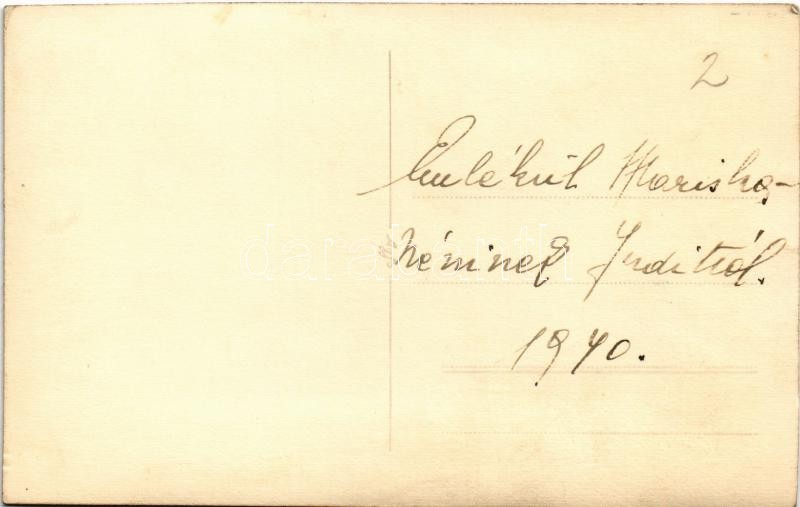 2
Emlékül Mariska-
néninek Judittól.
1940.
darabanth